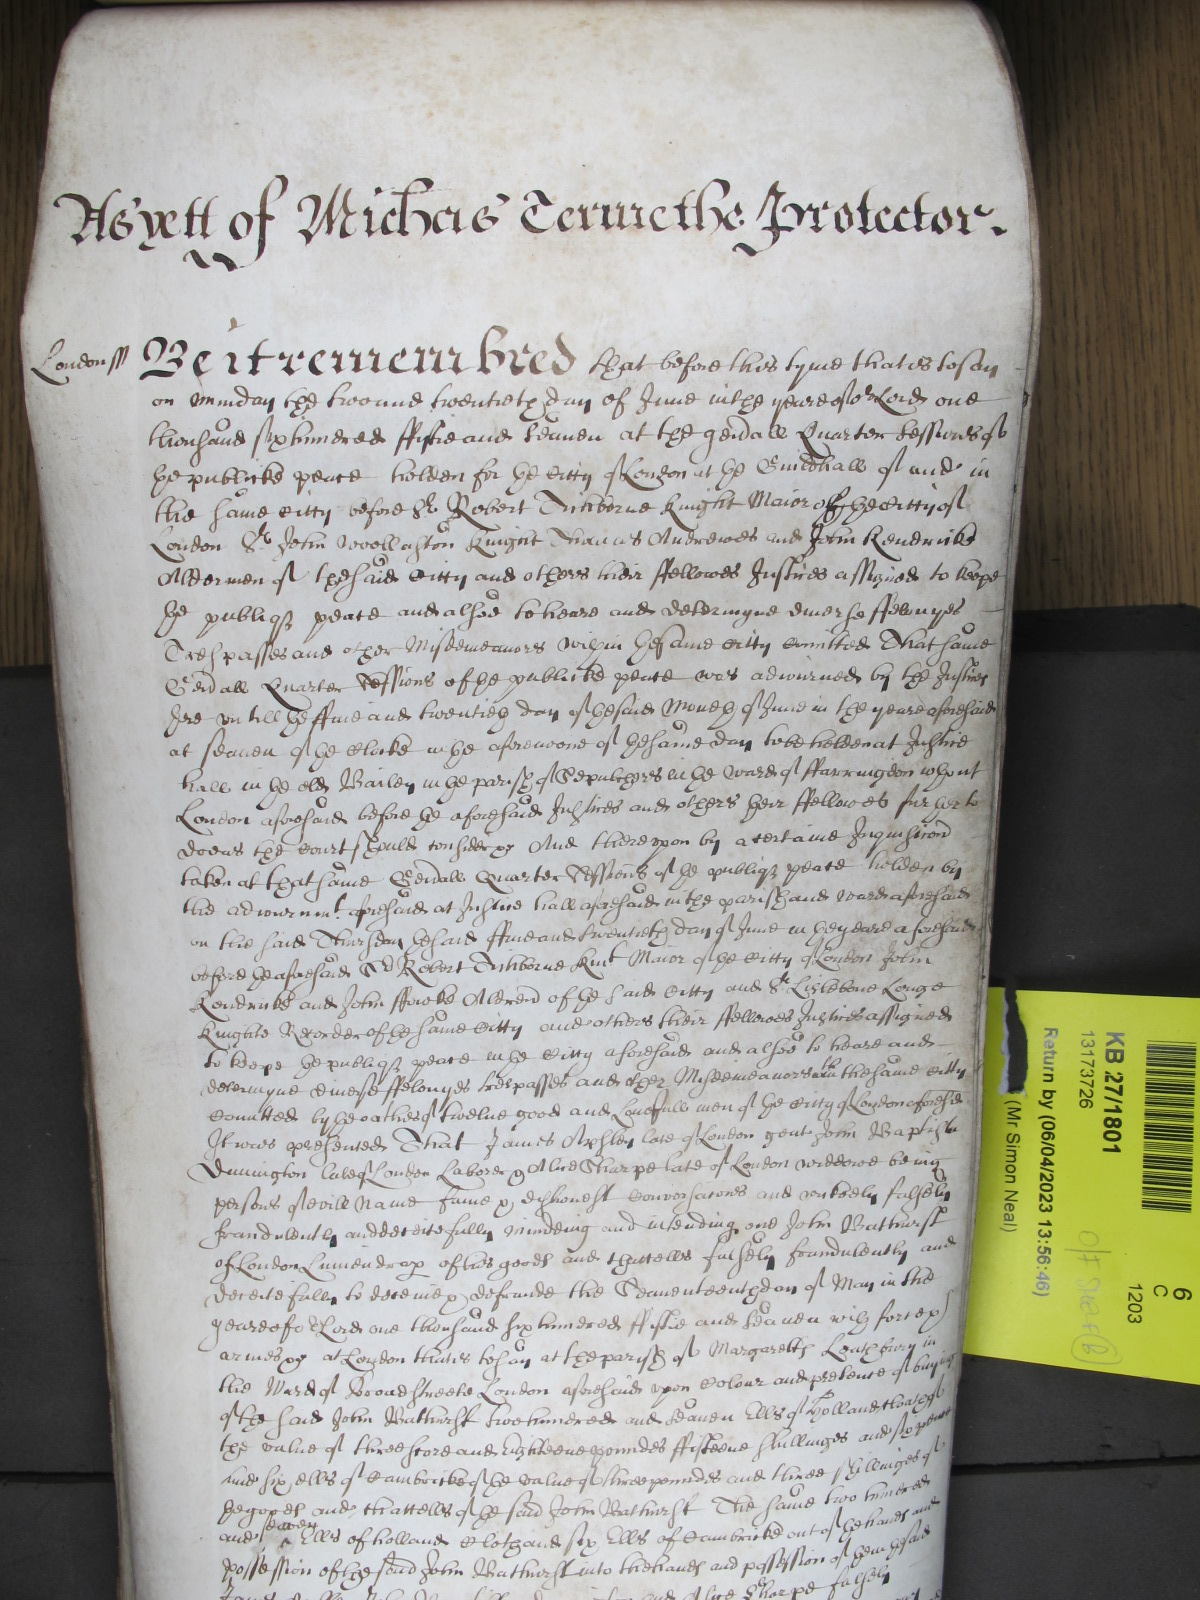 As yett of Michĩs Terme the Protector.
London ss Be it remembred that before this tyme that is to say
on munday the twoe and twentieth day of June in the yeare of or Lord one
thousand six hundred fiftie and seaven at the genãll Quarter Sessions of
the publicke peace holden for the citty of London at the Guildhall of and in
the same citty before Sr Robert Tichborne Knight Maior of the citty of
London Sr John Woollaston Knight Thomas Andrewes and John Kendricke
Aldermen of the said citty and others their ffellowes Justices assigned to keepe
the publiq peace and alsoe to heare and determyne diverse ffelonyes
Trespasses and other Misdemeanors within the same citty cõmitted That same
Genãll Quarter Sessions of the publicke peace was adiourned by the Justices
there untill the ffive and twentieth day of the said Moneth of June in the yeare aforesaid
at seaven of the clocke in the aforenoone of the same day to be holden at Justice
hall in the old Bailey in the parish of Sepulchres in the ward of ffarringdon without
London aforesaid before the aforesaid Justices and others their ffellowes further to
doe as the court should consider And thereupon by a certaine Inquisicon
taken at that same Genãll Quarter Sessions of the publiq peace holden by
the adiournmt. aforesaid at Justice hall aforesaid in the parish and ward aforesaid
on the said Thursday the said ffive and twentieth day of June in the yeare aforesaid
before the aforesaid Sr Robert Tichborne Knt Maior of the citty of London John
Kendricke and John ffowke Aldermen of the said citty and Sr Lislebone Longe
Knighte Recorder of the same citty and others their ffellowes Justices assigned
to keepe the publiq peace in the citty aforesaid and alsoe to heare and
determyne diverse ffelonyes trespasses and other Misdemeanors wthin the same citty
cõmitted by the oathes of twelve good and Lawfull men of the citty of London aforesaid
It was presented That James Ashley late of London gent John Baptist
Dunington late of London Laborer & Alice Tharpe late of London widdowe being
persons of evill Name fame & dishonest conversacons and wickedly falsely
fraudulently and deceitefully mindeing and intending one John Bathurst
of London Linnendrap of his goods and chattells falsely fraudulently and
deceitefully to deceive & defraude the Seaventeenth day of May in the
yeare of or Lord one thousand six hundred fiftie and seaven with force &
armes & at London that is to say at the parish of Margaretts Lothbury in
the Ward of Broadstreete London aforesaid upon colour and pretence of buying
of the said John Bathurst two hundred and seaven Ells of holland cloath of
the value of threescore and eighteene poundes fifteene shillinges and six pence
and six ells of cambricke of the value of three poundes and three shillinges of
the goods and chattells of the said John Bathurst The same two hundred
and seaven Ells of holland cloth and six Ells of cambricke out of the hands and
possession of the said John Bathurst into the hands and possession of them the said
and Alice Tharpe falsely
6
C
1203
KB 27/1801
13173726
Return by (06/04/2023 13:56:46)
(Mr Simon Neal)